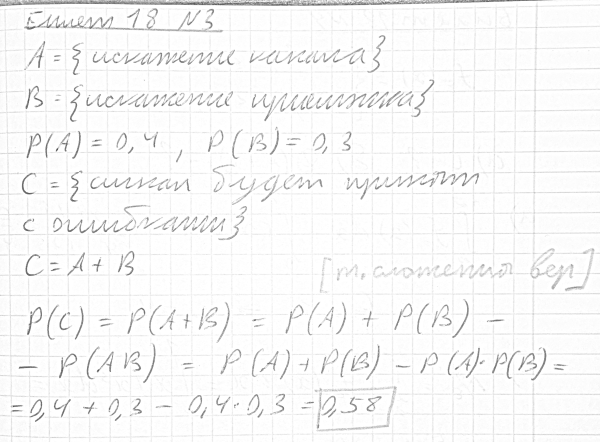 Билет 18 №3
A = {искажение канала}
B = {искажение приемника}
P(A) = 0,4 , P(B) = 0,3
C = {сигнал будет принят
с ошибками}
C = A + B [т. сложения вер]
P(C) = P(A+B) = P(A) + P(B) –
– P(AB) = P(A) + P(B) – P(A)·P(B) =
= 0,4 + 0,3 – 0,4·0,3 = 0,58